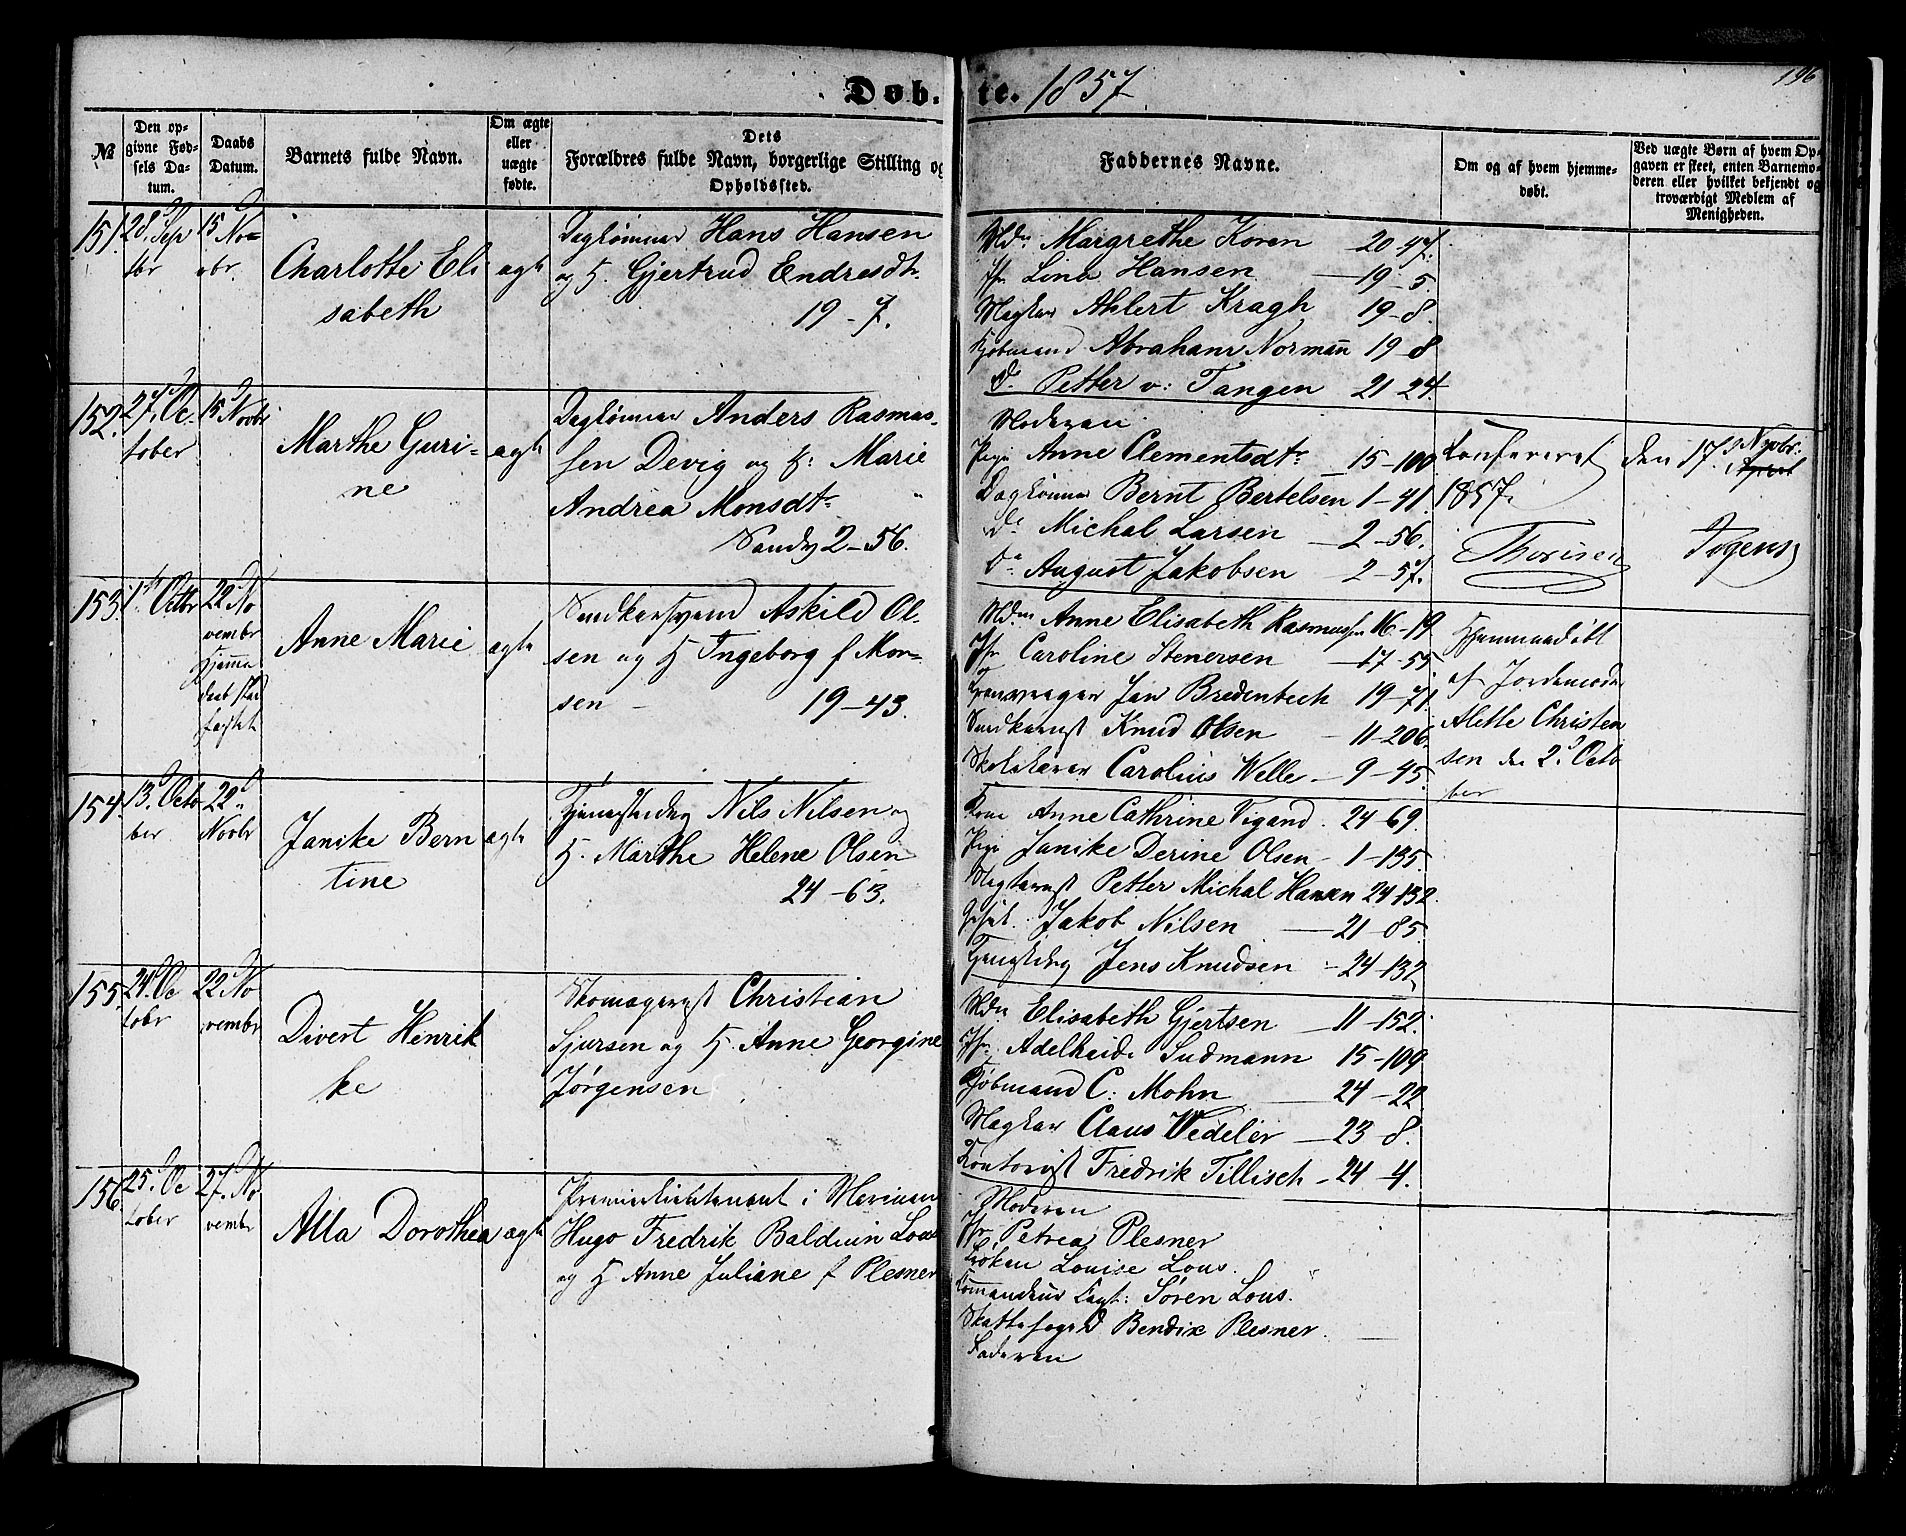 Døb- te. 1857. 196
№
Den op-
givne Fød-
sels Da-
tum.
Daabs
Datum.
Barnets fulde Navn.
Om ægte
eller
uægte
fødte.
Dets
Forældres fulde Navn, borgerlige Stilling og
Opholdssted.
Faddernes Navne.
Om og af hvem hjemme-
døbt.
Ved uægte Børn af hvem Op-
gaven er skeet, enten Barnemo-
deren eller hvilket bekjendt og
troværdigt Medlem af
Menigheden.
151. 28. Sep
tbr
15 No-
vbr.
Charlotte Eli
sabeth
ægte
Daglønner Hans Hansen
og H. Gjertrud Endresdtr.
19 - 7.
Mdm Margrethe Koren 20-47.
Jfr Lina Hansen 19-5.
Mægler Ahlert Kragh 19-8.
Kjøbmand Abraham Normann 19-8
Do Petter v: Tangen 21 24.
152. 27. Oc-
tober
15 Novbr
Marthe Guri-
ne
ægte
Daglønner Anders Rasmus-
sen Devig og H: Marie
Andrea Monsdtr.
Sandv 2-56.
Moderen
Pige Anne Clementsdtr 15-100
Daglønner Bernt Bertelsen 1-41.
Do Michal Larsen 2-56.
Do August Jakobsen 2-57.
Confereret den 17. Novbr:
1857.
Thorisen Jogens
153. 1ste Octbr
22 No
vember
Hjemme
daab stad
fæstet
Anne Marie
ægte
Snedkersvend Askild Ol-
sen og H Ingeborg f Mon-
sen - 19-43.
Mdm Anne Elisabeth Rasmussen 16-19
Jfr Caroline Stenersen 17-55.
Jan Bredenbech 19-71.
Snedkersvd Knud Olsen 11-206.
Skolelærer Carolius Welle 9-45.
Hjemmedøbt
af Jordemoder
Alette Christen
sen den 2. Octo
ber
154. 13. Octo
ber
22
Novbr
Janike Bern
tine
ægte
Nils Nilsen og
H. Marthe Helene Olsen
24-63.
Kone Anne Cathrine Vigand. 24-69.
Pige Janike Derine Olsen 1-135.
Petter Michal Hansen 24-132.
Jakob Nilsen 21-85.
Jens Knudsen 24-132.
155. 24. Oc
tobr
22 No
vembr
Divert Henrik
ke
Skomagersvd Christian
Sjursen og H. Anne Georgine
Jørgensen
Mdm Elisabeth Gjertsen 11-152.
Jfr. Adelheide Sudmann 15-109
Kjøbmand C. Mohn 24-22
Mægler Claus Wedeler 23-8.
Kontorist Fredrik Tillisch 24-4.
156. 25. Oc
tober
27. No
vembr
Alla Dorothea
ægte
Premierlieutenant i Marinen
Hugo Fredrik Balduin Lous
og H Anne Juliane f Plesner
Moderen
Jfr. Petrea Plesner
Frøken Louise Lous.
Commandeur Capt: Søren Lous.
Skattefoged Bendix Plesner.
Faderen